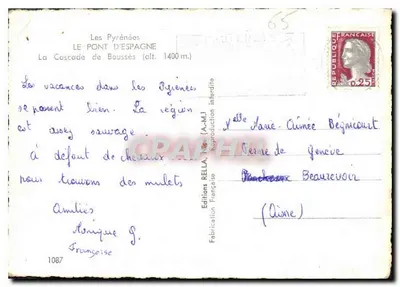 Les Pyrénées
LE PONT D'ESPAGNE
La Cascade de Boussès (alt. 1400 m.)
65
Les vacances dans les Pyrénées
se passent bien. La région
est assez sauvage.
à défaut de chevaux
nous trouvons des mulets
Amitiés
Monique G.
Françoise
1087
Editions RELLA, Nice (A.-M.)
Fabrication Française Reproduction interdite
REPUBLIQUE FRANÇAISE
0,25
Melle Marie-Aimée Bégnicourt
Ferme de Genève
Beaurevoir
(Aisne)